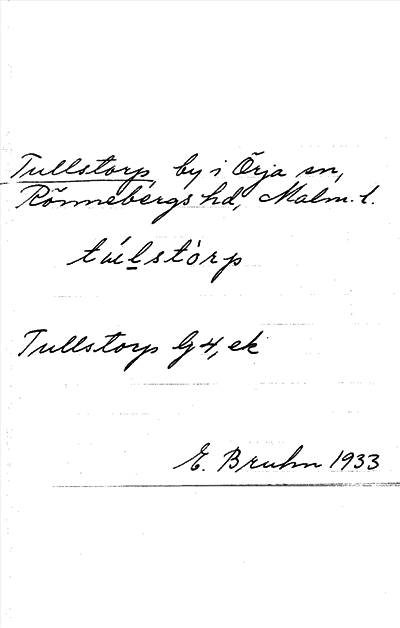 Tullstorp, by i Örja sn,
Rönnebergs hd, Malm. l.
túlstòrp
Tullstorp G4, ek
E. Bruhn 1933